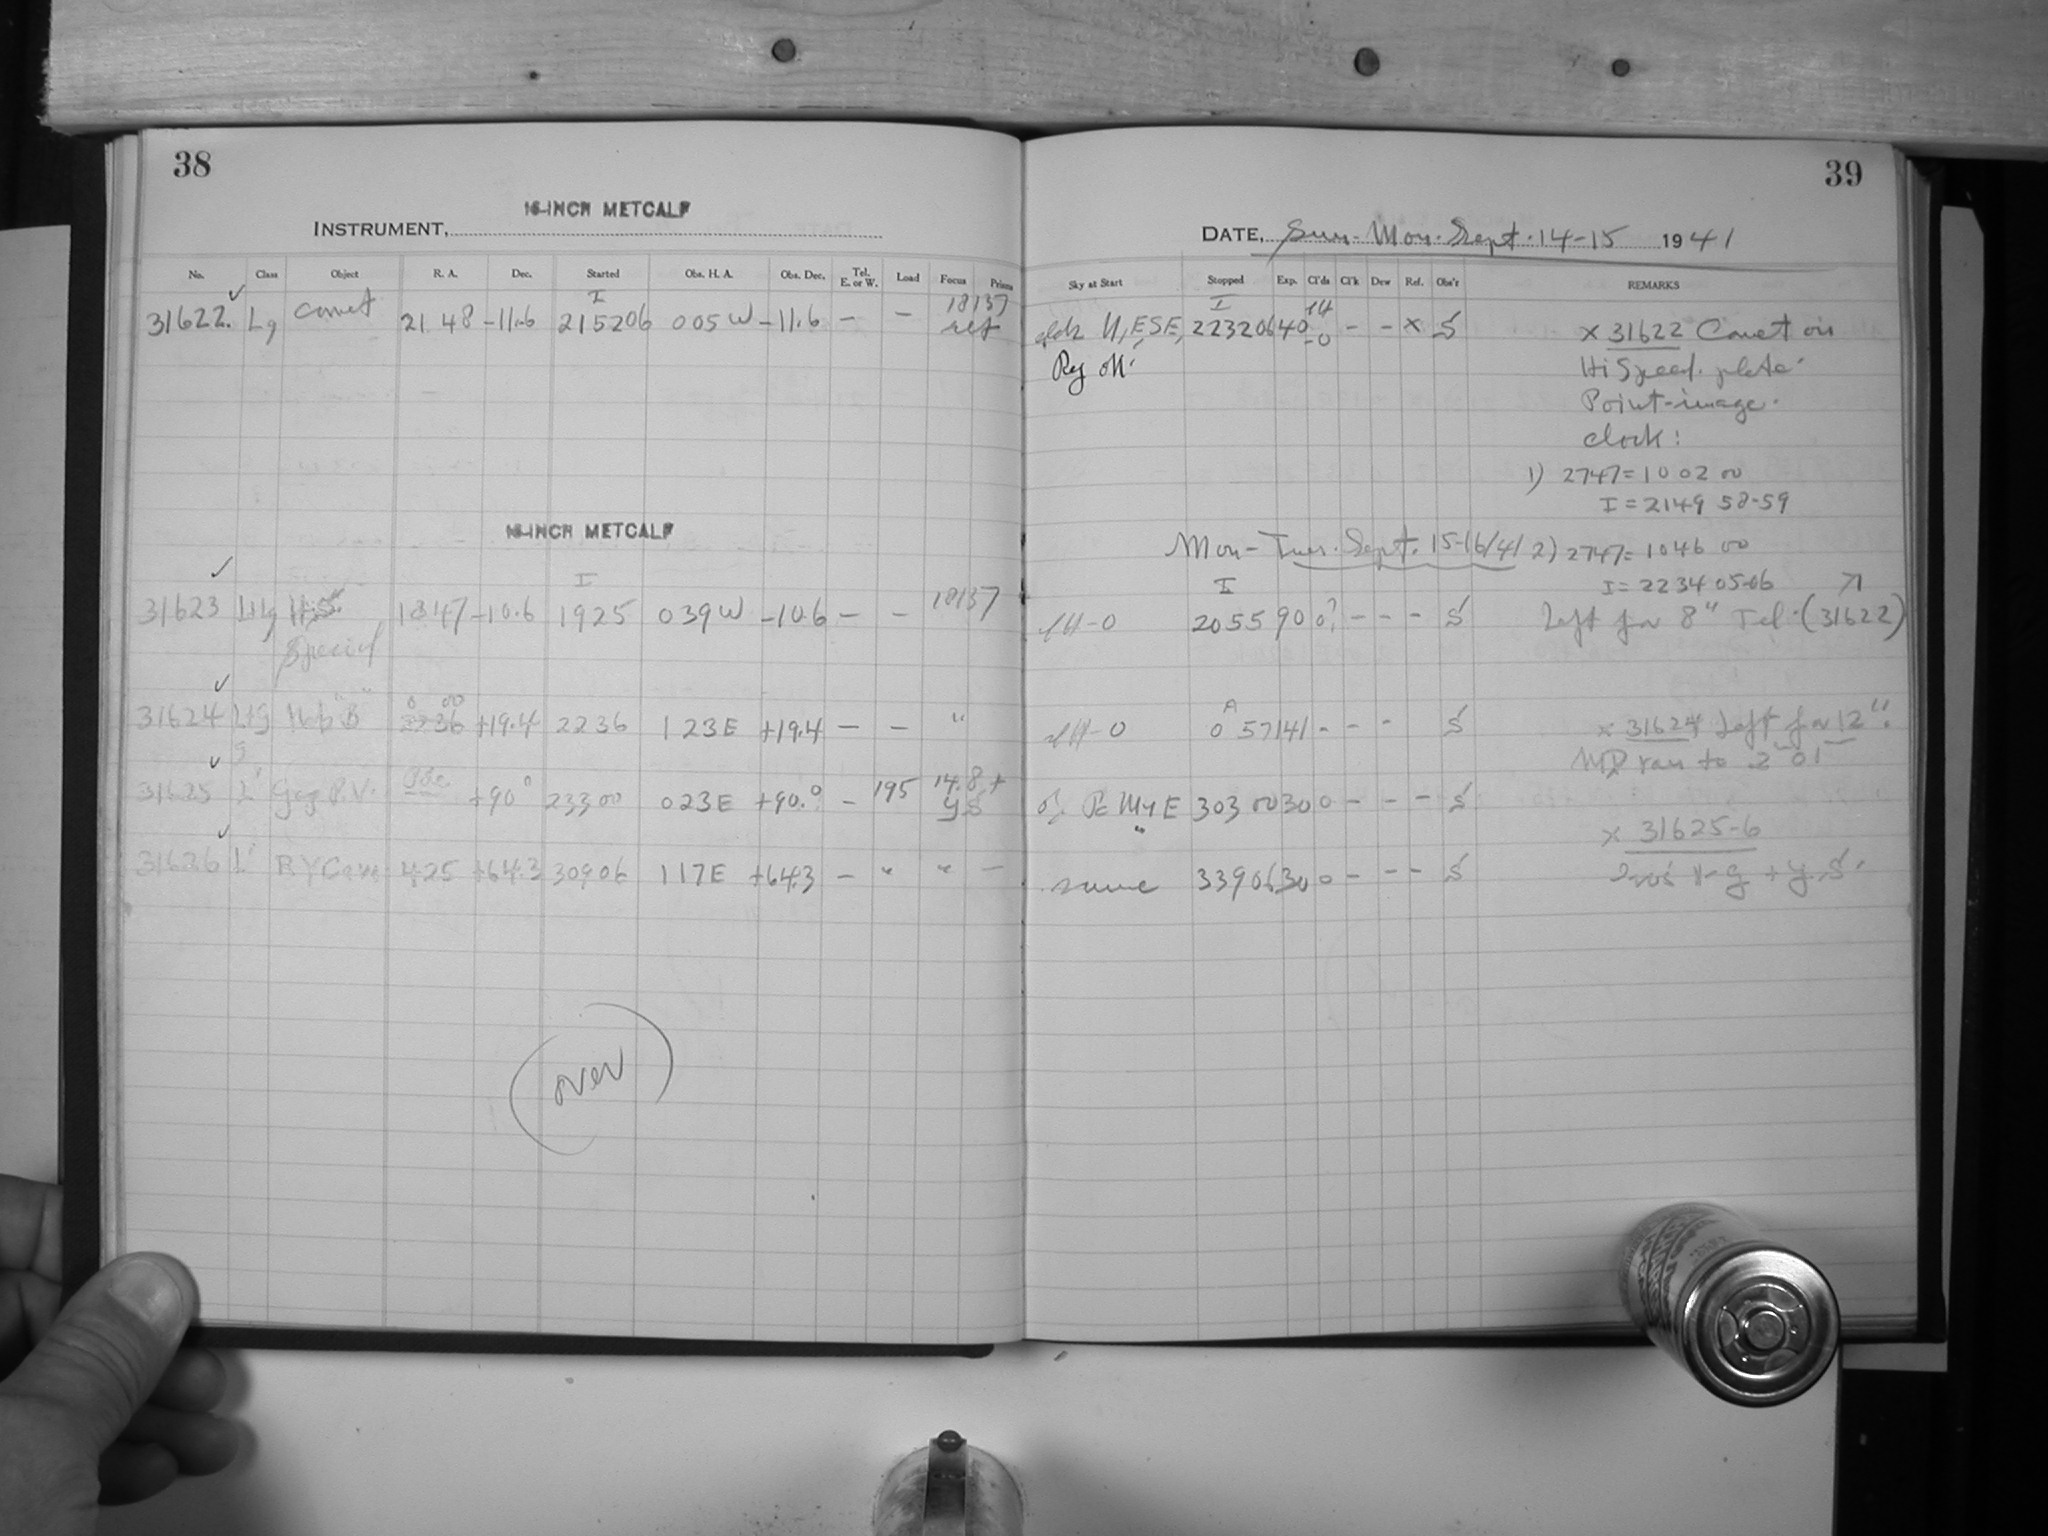 38
16-INCH METCALF
INSTRUMENT,
No. Class Object R. A. Dec. Started Obs. H. A. Obs. Dec. Tel. E. or W. Load Focus Prisms
I 18137
31622. Lg Comet 21 48 -11.6 215206 005 W -11.6 - - ret
16-INCH METCALF
I
31623 1847 -10.6 1925 039 W -10.6 - - 18137
Special
0 00
31624 "B" 2236 +19.4 2236 123 E +19.4 - - "
31625 L' P.V. Pole +90° 23300 023 E +90.° - 195 14.8 +
YS
31626 L' RY Cam 425 +64.3 30906 117 E +64.3 - " " -
(over)
39
DATE, Sun-Mon. Sept. 14-15 1941
Sky at Start Stopped Exp. Cl'ds Cl'k Dew Ref. Obs'r REMARKS
I
N, ESE, 223206 40 - - x S x 31622 Comet on
Hi Speed plate.
Point-image.
clock:
1) 2747 = 10 02 00
I = 2149 58-59
Mon-Tues. Sept. 15-16/41 2) 2747 = 1046 00
I I = 2234 05-06
2055 90 0? - - - S Left for 8" Tel. (31622)
A
0 57 141 - - - S x 31624 Left for 12".
ran to 2 01
E 30300 30 0 - - - S
x 31625-6
same 33906 30 0 - - - S g + y.S.